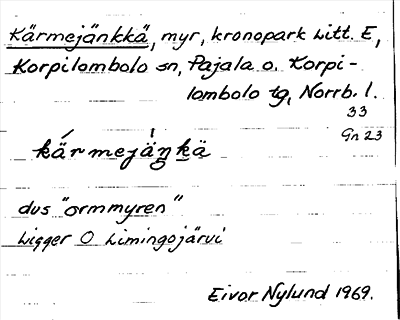 Kärmejänkkä, myr, kronopark Litt. E,
Korpilombolo sn, Pajala o. Korpi-
lombolo tg, Norrb. l.
33
Gn 23
kä́rmejäŋ̍kä
dvs "ormmyren"
Ligger O Limingojärvi
Eivor Nylund 1969.